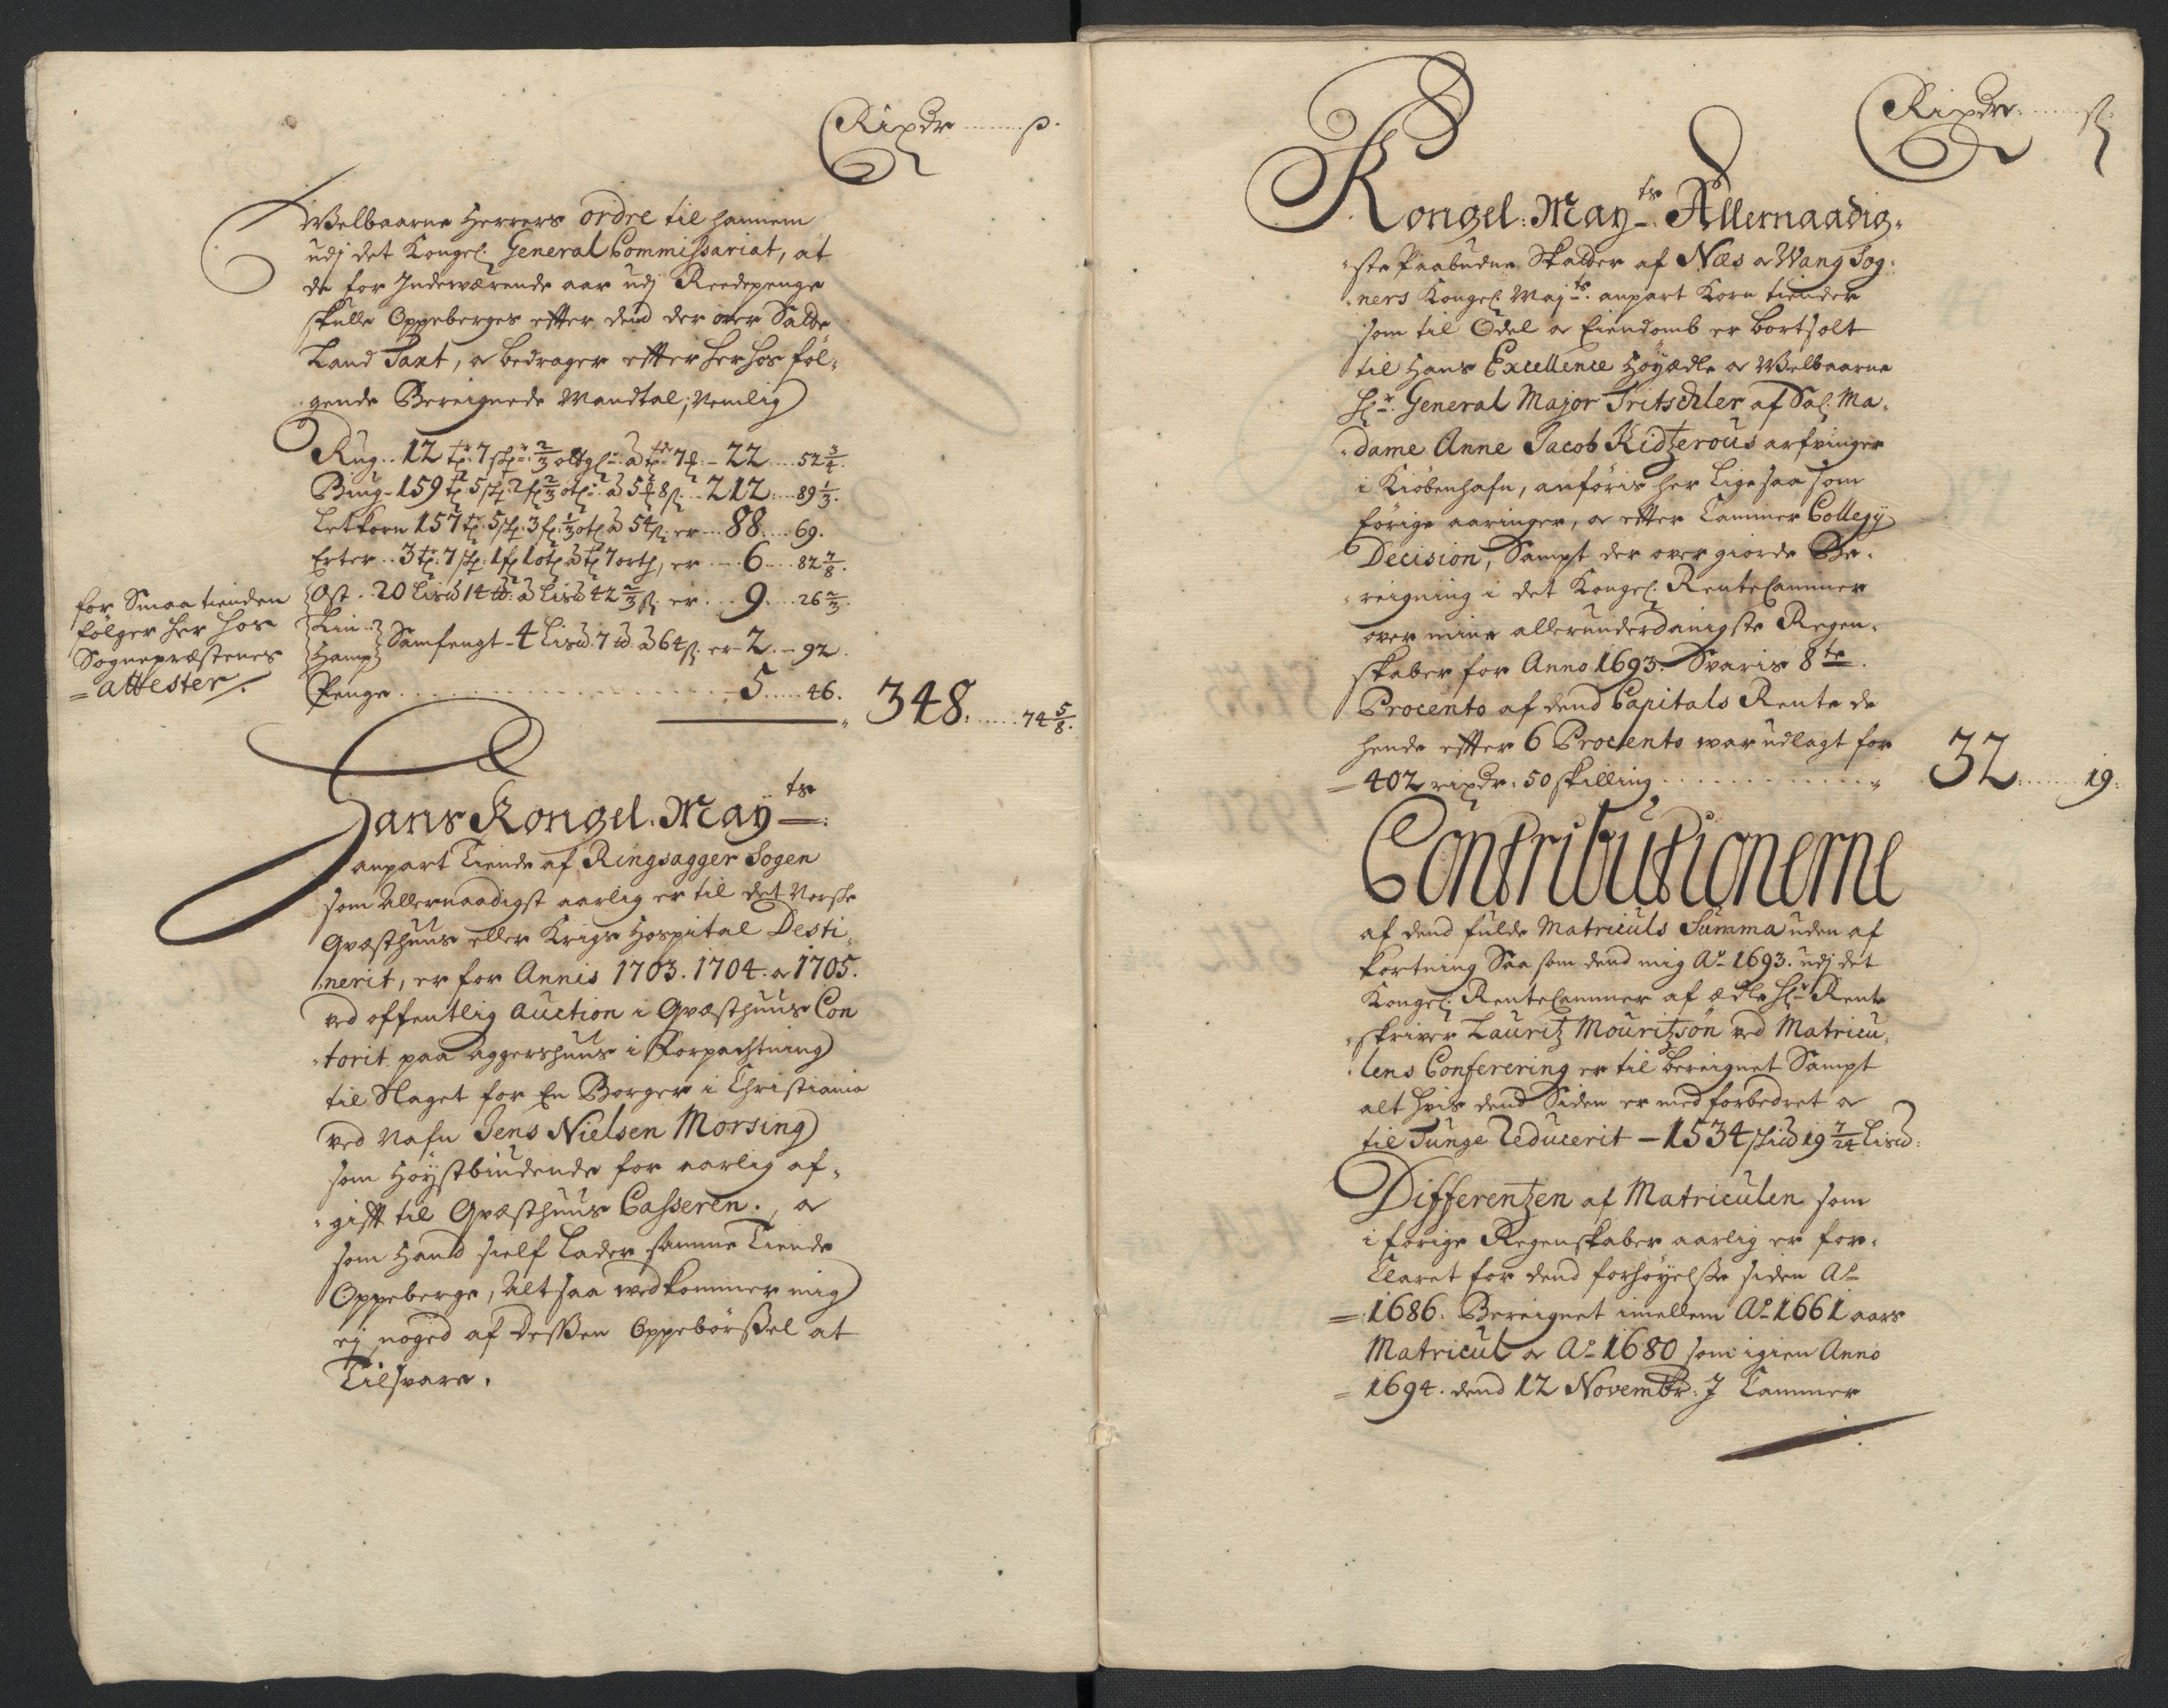 Rixdr ....... ß.
Welbaarne Herrers ordre til hannem
udj det Kongel: General Commissariat, at
de for Indeværende aar udj Reedepenge
skulle Oppeberges efter dend der over Satte
Land Taxt, a bedrager efter herhos föl-
gende Bereignede Mandtal; Nemlig
Rug .. 12 tr: 7 shr: 2/3 a tr 7 - 22 .... 52 3/4.
Biug - 159 tr: 5 sh 2 f 2/3 a 5 8 ß: .. 212 .... 89 1/3.
Letkorn 157 tr: 5 sh: 3 f: 1/3 a 54 ß: er ... 88 .... 69.
Erter .. 3 tr: 7 sh: 1 f 1 a t 7 orth, er ... 6 .... 82 7/8.
Ost . 20 Lisd 14 td: a Lisd 42 2/3 ß: er ... 9 .... 26 2/3.
Liin
Hamp
Samfengt - 4 Lisd: 7 td: a 64 ß: er - 2 . - 92.
Penge ............ 5 .... 46.
348. ..... 74 5/8.
for Smaa tienden
fölger her hos
Sognepræstenes
= attester /.
Hans Kongel. Mayts:
anpart Tiende af Ringsagger Sogen
som Allernaadigst aarlig er til det Norske
Qvæsthuus eller Krigs Hospital Desti-
nerit, er for Annis 1703. 1704. a 1705.
ved offentlig Auction i Qvæsthuus Con
-torit paa Aggershuus i Forpachtning
til Slaget for En Borger i Christiania
ved Nafn Jens Nielsen Morsing
som Höystbiudende for aarlig af-
-gift til Qvæsthuus Casseren., a
som Hand sielf lader samme Tiende
Oppeberge, Altsaa vedkommer mig
ej noged af Dessen Oppebörßel at
Tilsvare.
Rixdr: ...... ß:
Kongel: Mayts: Allernaadig-
-ste Paabudne Skatter af Næs a Wang Sog-
-ners Kongel: Majts: anpart Korn tiender
som til Odel a Eiendomb er bortsolt
til Hans Excellence Höyædle a Welbaarne
Hr: General Major Tritschler af Sal: Ma-
-dame Anne Jacob Kidtzerous arfvinger
i Kiöbenhafn, anföris her ligesaa som
förige aaringer, a efter Cammer Collegij
Decision, Sampt der over giorde Be-
-reigning i det Kongel: RenteCammer
over mine allerunderdanigste Regen-
skaber for Anno 1693. Svaris 8te.
Procento af dend Capitals Rente de
hende efter 6 Procento war udlagt for
= 402 rixdr: 50 skilling ........... 32 ..... 19.
Contributionerne
af dend fulde Matriculs Summa uden af
kortning Saa som dend mig Ao 1693. udj det
Kongel: RenteCammer af ædle Hr: Rente
-skriver Lauritz Mouritzsön ved Matricu-
-lens Conferering er til bereignet Sampt
alt hvis dend Siden er med forbedret a
til Tunge Reducerit - 1534 skid 19 7/24 Lisd:
Differentzen af Matriculen som
i forige Regenskaber aarlig er for-
klaret for dend forhöyelße siden Ao
= 1686. Bereignet imellem Ao 1661 aars
Matricul a Ao 1680 som igien Anno
= 1694. dend 12 Novembr: J Cammer